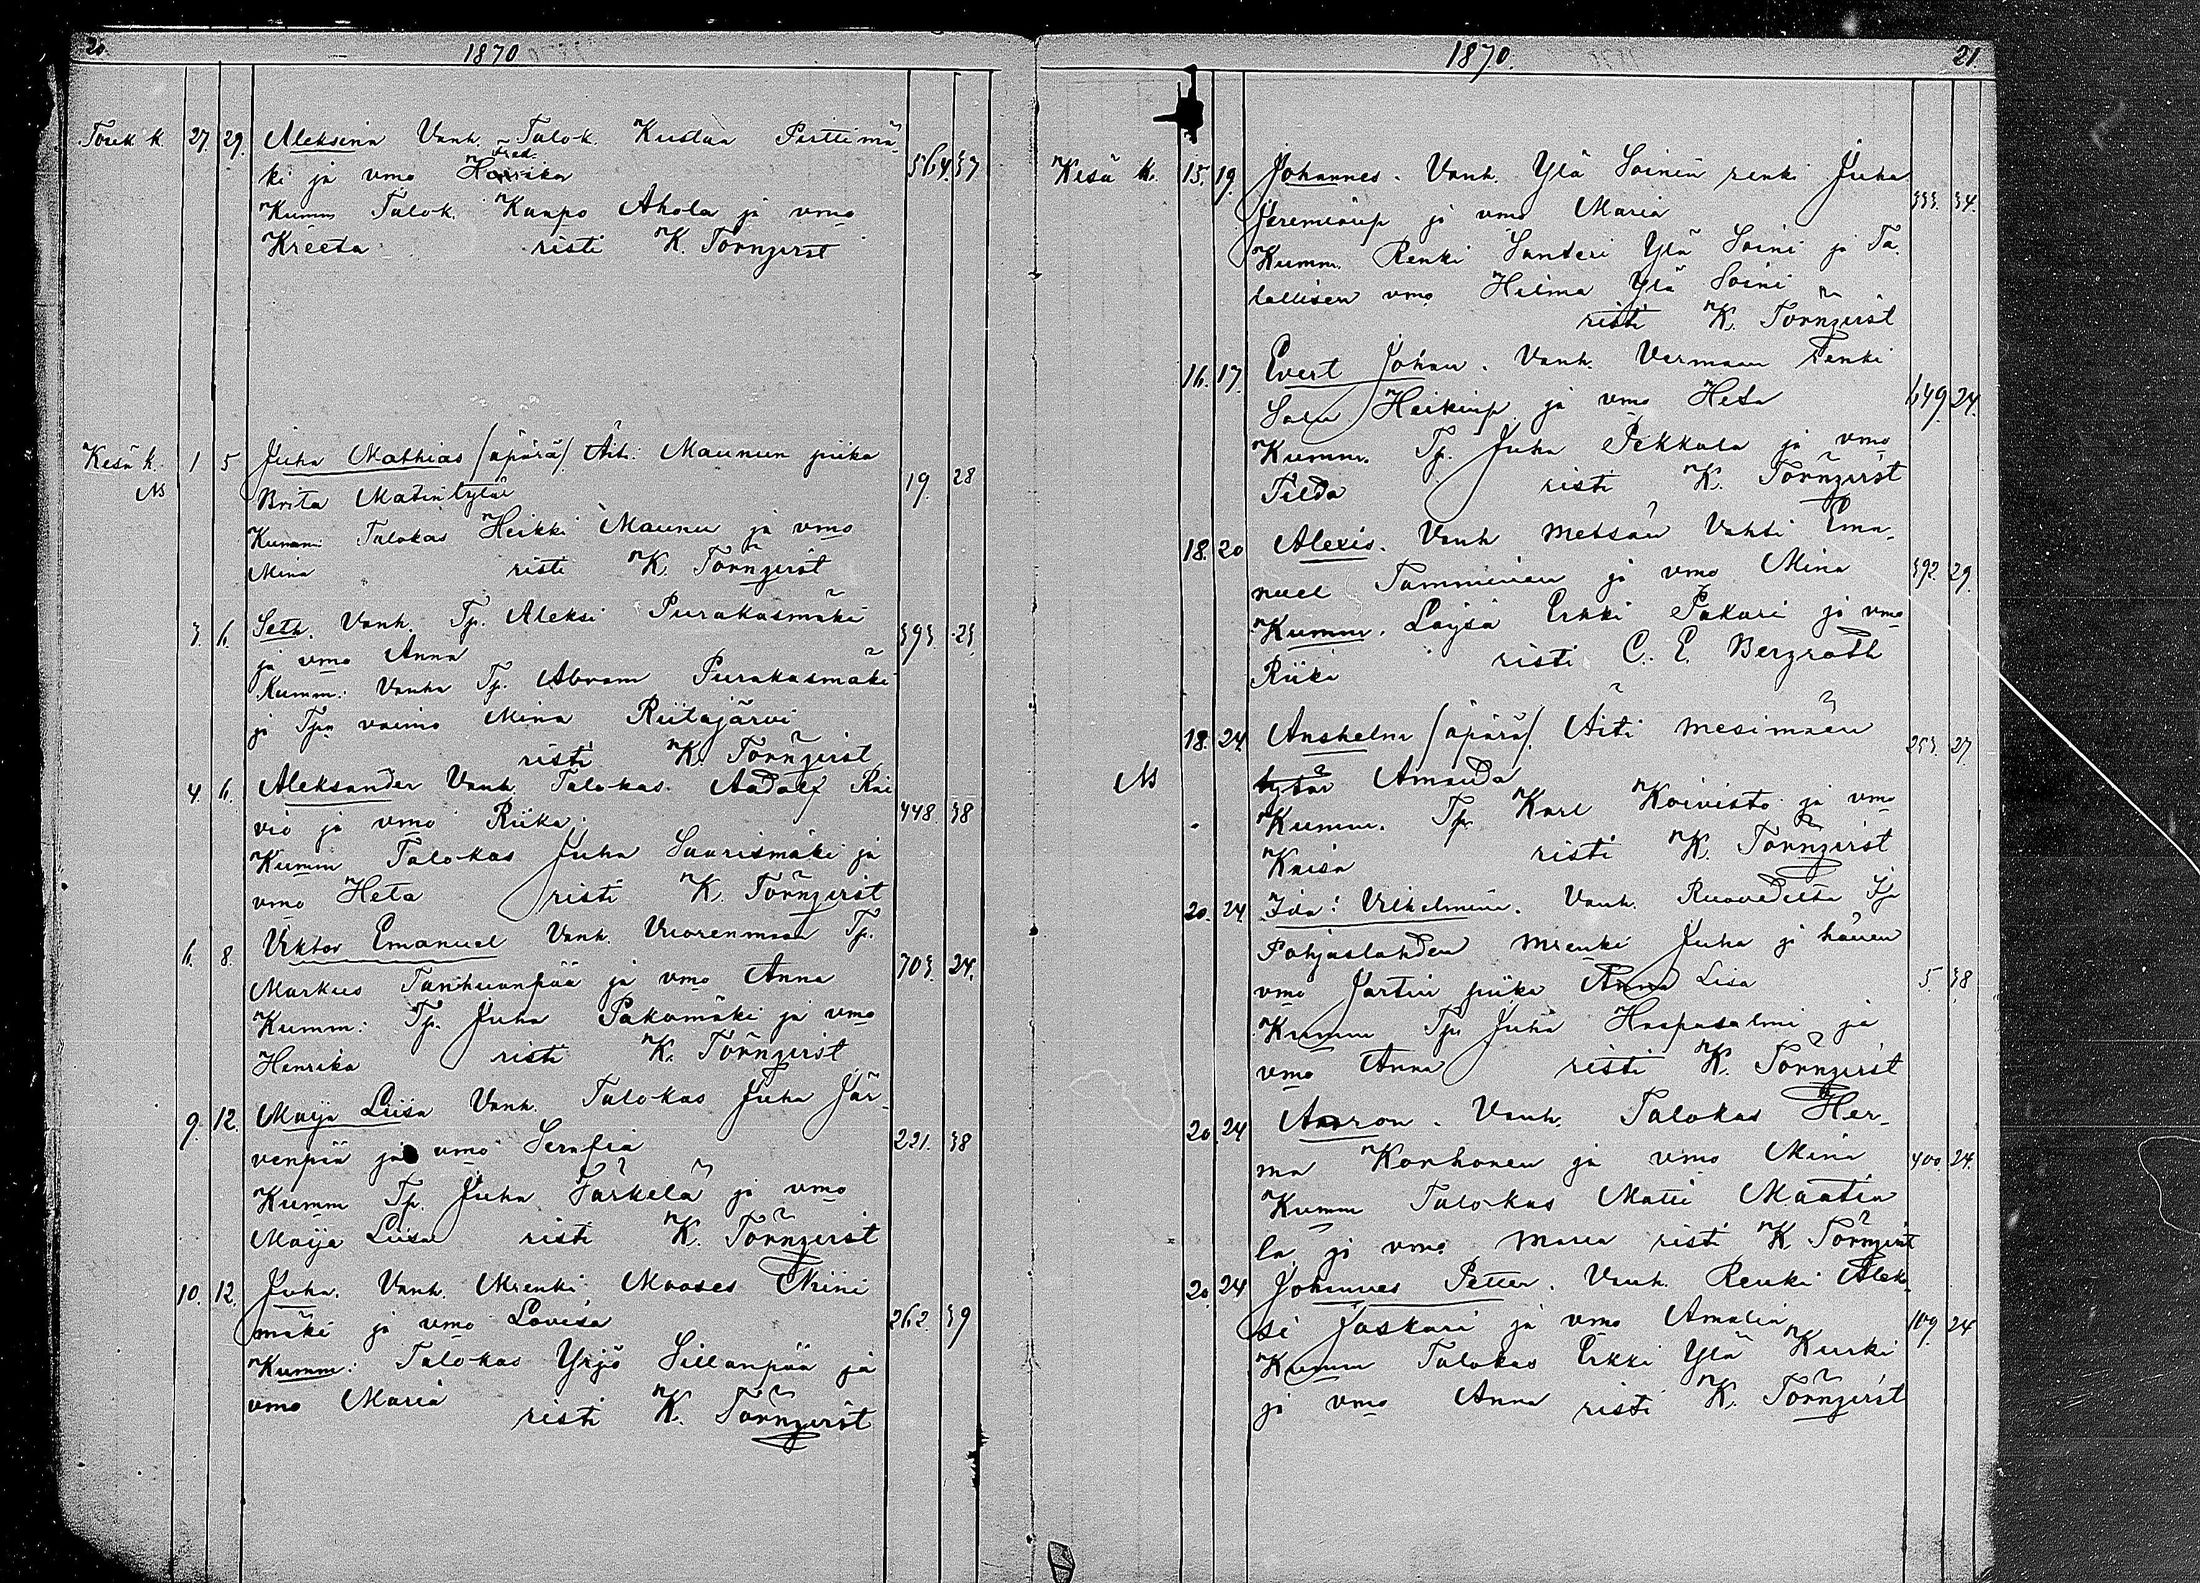 20
1870
Touk. k. 27. 29. Aleksina Vanh. Talok. Kustaa Perttimä-
ki ja vmo Fred. Henrika 564. 37
Kumm Talok. Kaapo Ahola ja vmo
Kreeta risti K. Törnqvist
Kesä k. 1 5 Juha Mathias /äpärä/. Äiti: Maunun piika
Brita Matintytär 19. 28
Kumm: Talokas Heikki Maunu ja vmo
Mina risti K. Törnqvist
3. 6. Seth. Vanh. Tp. Aleksi Purakasmäki
ja vmo Anna 393. 23.
Kumm: Vanha Tp. Abram Purakasmäki
ja Tpn vaimo Mina Riitajärvi
risti K. Törnqvist
4. 6. Aleksander Vanh. Talokas Aadolf Rai
vio ja vmo Riika. 448. 38
Kumm Talokas Juha Saarismäki ja
vmo Heta risti K. Törnqvist
6. 8. Viktor Emanuel Vanh. Vuorenmaa Tp.
Markus Tanhuanpää ja vmo Anna 703. 24.
Kumm: Tp. Juha Pakamäki ja vmo
Henrika risti K. Törnqvist
9. 12. Maija Liisa Vanh. Talokas Juha Jär-
venpää ja vmo Serafia 221. 38
Kumm Tp. Juha Tärkelä ja vmo
Maija Liisa risti K. Törnqvist
10. 12. Juha. Vanh. Mrenki Mooses Niini
mäki ja vmo Lovisa 262. 39
Kumm: Talokas Yrjö Sillanpää ja
vmo Maria risti K. Törnqvist
1870. 21
Kesä k. 15. 19. Johannes. Vanh. Ylä Soinin renki Juha
Jeremianp ja vmo Maria 333. 34.
Kumm. Renki Santeri Ylä Soini ja Ta-
lollisen vmo Hilma Ylä Soini
risti K. Törnqvist
16. 17. Evert Johan. Vanh. renki
Salu Heikinp. ja vmo Heta 649. 24.
Kumm. Tp. Juha Pekkala ja vmo
Tilda risti K. Törnqvist
18. 20 Alexis. Vanh Metsän Vahti Ema-
nuel Tamminen ja vmo Mina 392. 29.
Kumm. Erkki Pakari ja vmo
Riika risti C. E. Bergroth
18. 24. Anshelm /äpärä/. Äiti
tytär Amanda 253. 27.
Kumm. Tp. Karl Koivisto ja vmo
Kaisa risti K. Törnqvist
20. 24. Ida Vilhelmina. Vanh. Ruovedeltä
Pohjaslahden mrenki Juha ja hänen
vmo piika Anna Lisa 5. 38
Kumm Tp. Juha Haapasalmi ja
vmo Anna risti K. Törnqvist
20. 24 Aaron. Vanh. Talokas Her-
ma Korhonen ja vmo Mina 400. 24.
Kumm Talokas Matti Maatia
la ja vmo Maria risti K. Törnqvist
20. 24 Johannes Petter. Vanh. Renki Alek-
si Jaskari ja vmo Amalia 109. 24
Kumm Talokas Erkki Ylä Kurki
ja vmo Anna risti K. Törnqvist